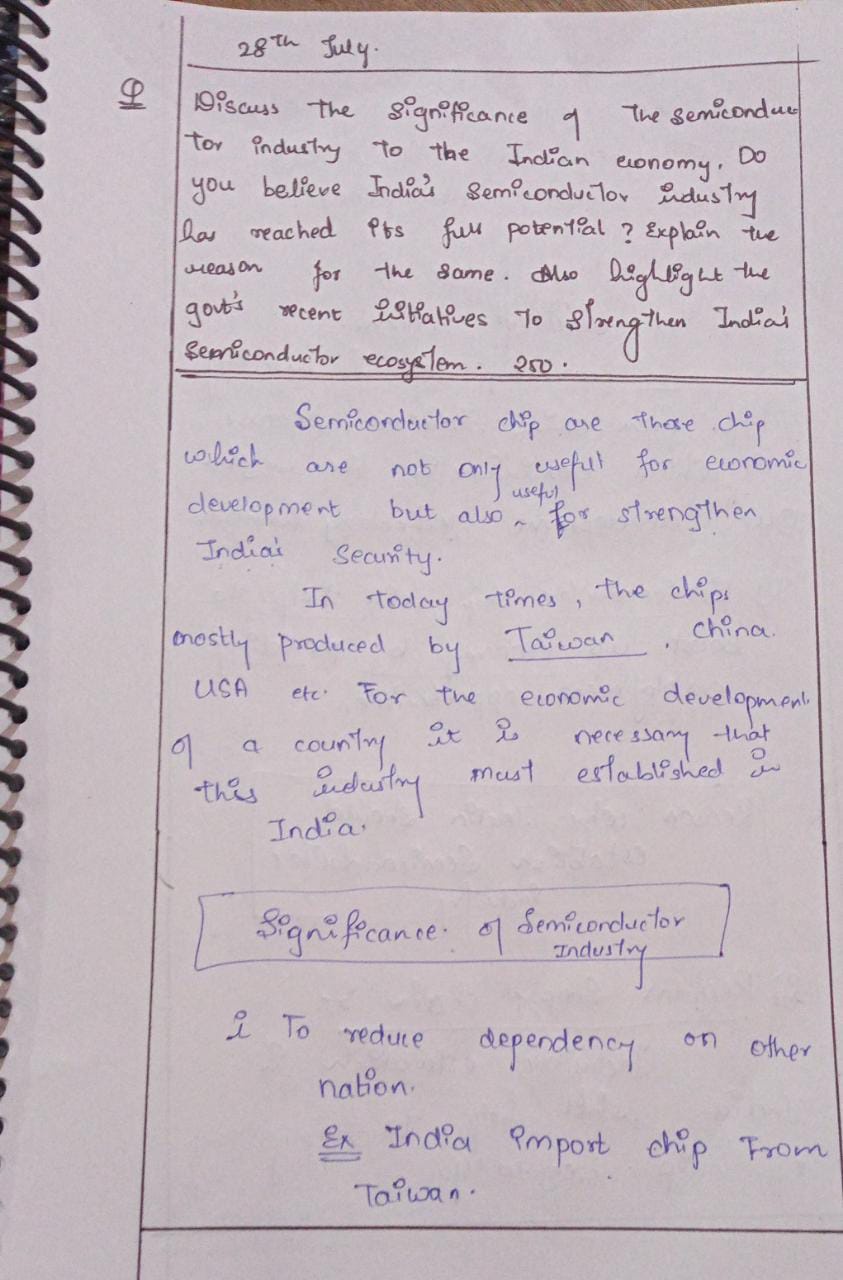 28th July.
Q
Discuss the significance of the semiconduc
tor industry to the Indian economy. Do
you believe India's semiconductor industry
has reached its full potential? Explain the
reason for the same. Also highlight the
govt's recent initiatives to strengthen India's
semiconductor ecosystem. 250.
Semiconductor chip are those chip
which are not only useful for economic
development but also useful for strengthen
India's Security.
In today times, the chips
mostly produced by Taiwan, China.
USA etc. For the economic development
of a country it is necessary that
this industry must established in
India.
Significance of Semiconductor
Industry
i To reduce dependency on other
nation.
Ex India import chip From
Taiwan.